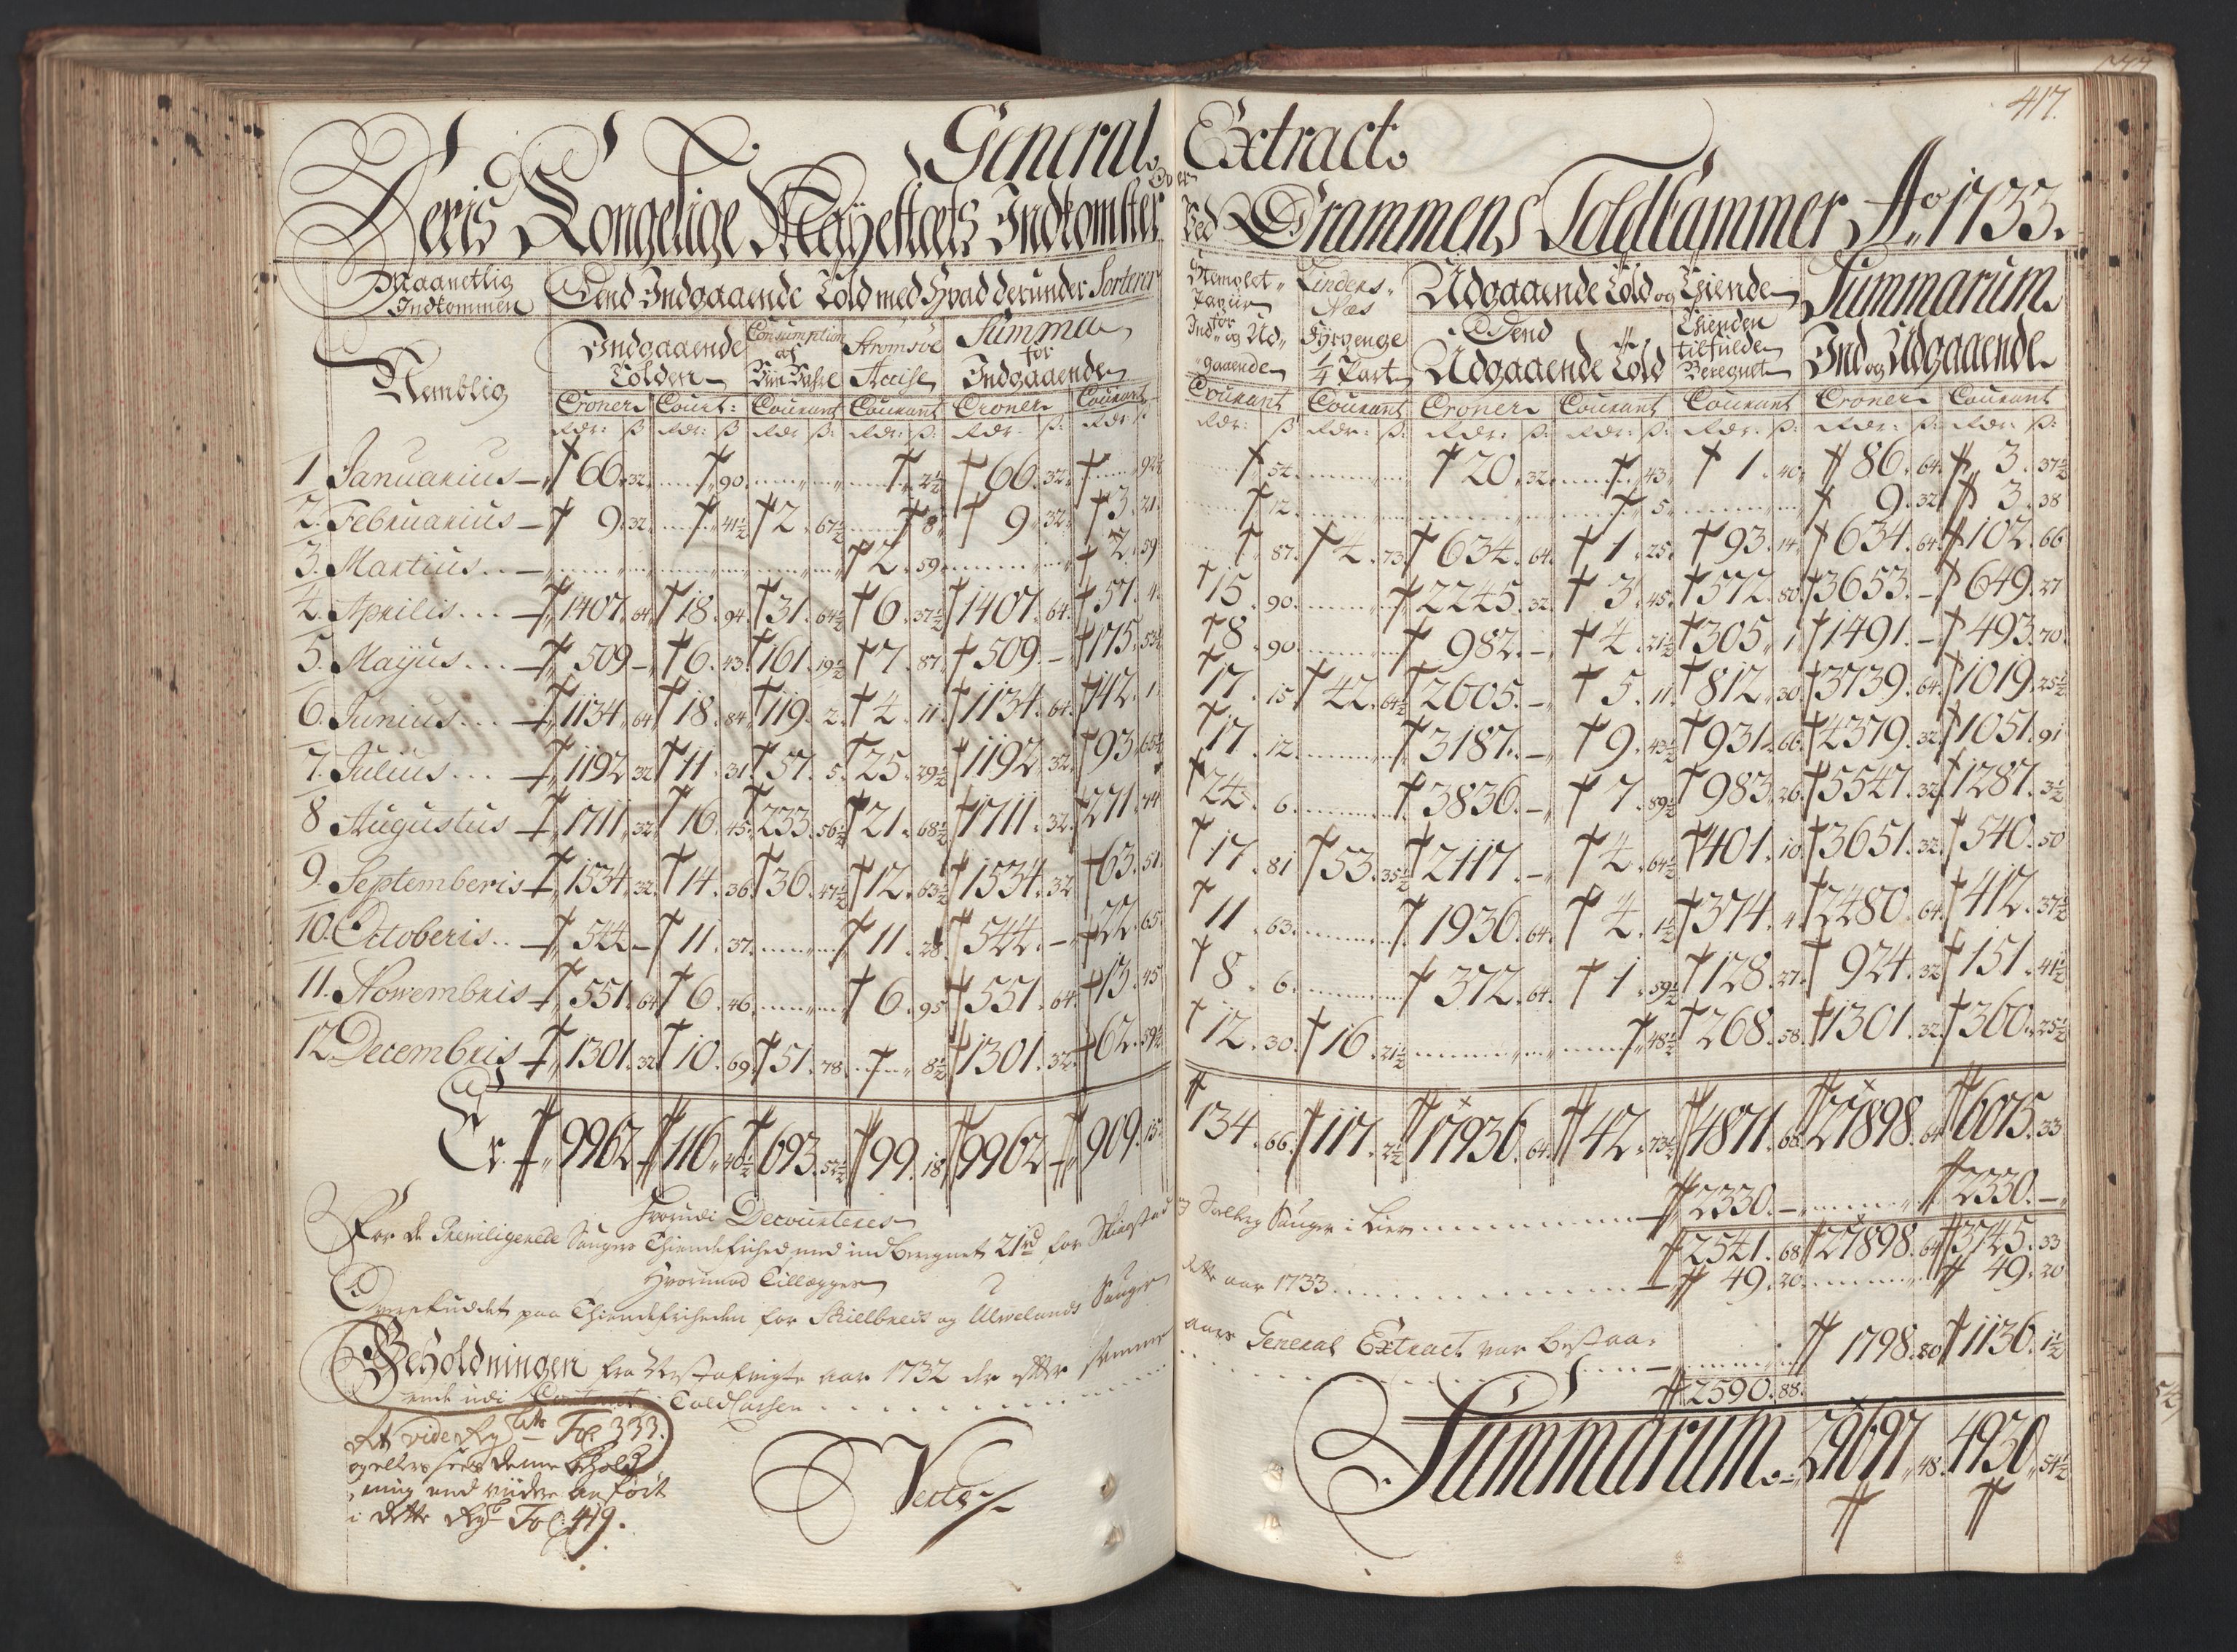 417.
General Extract
Over
Deris Kongelige Mayestæts Indkomster Ved Drammens Toldkammer Ao 1733.
Maanetlig Indkommen
Dend Indgaaende Told med Hvad derunder Sorterer
Stemplet Papiir for Ind- og Udgaaende
Lindersnæs Fyrpenge 1/4 Part
Udgaaende Told og Tiende
Summarum
Nemblig
Indgaaende Tolden
Consumption af
Strømsøe Accise
Summa for Indgaaende
Dend Udgaaende Told
Thienden tilfulde Beregnet
Ind og Udgaaende
Croner Court: Courant Courant Croner Courant Courant Courant Croner Courant Courant Croner Courant
Rdr: ß Rdr: ß Rdr ß: Rdr: ß: Rdr ß: Rdr ß Rdr: ß Rdr: ß: Rdr: ß: Rdr: ß: Rdr: ß: Rdr: ß: Rdr: ß:
1 Januarius 66. 32. 90. 2½ 66. 32. 92½ 54. 20. 32. 43. 1. 40. 86. 64. 3. 37½
2. Februarius 9. 32. 41½ 2. 67½ 8. 9. 32. 3. 21. 12. 5. 9. 32. 3. 38
3. Martius 2. 59. 2. 59 87. 4. 73. 634. 64. 1. 25. 93. 14. 634. 64. 102. 66
4. Aprilis 1407. 64. 18. 94. 31. 64½ 6. 37½ 1407. 64. 57. 4. 15. 90. 2245. 32. 3. 45. 572. 80. 3653. – 649. 27
5. Mayus 509 – 6. 43. 161. 19½ 7. 87. 509. – 175. 53½ 8. 90. 982. – 4. 21½ 305. 1. 1491. – 493. 70.
6. Junius 1134. 64. 18. 84. 119. 2. 4. 11. 1134. 64. 142. 1. 17. 15. 42. 64½ 2605. – 5. 11. 812. 30. 3739. 64. 1019. 25½
7. Julius 1192. 32. 11. 31. 57. 5. 25. 29½ 1192. 32. 93. 65½ 17. 12. 3187. – 9. 43½ 931. 66. 4379. 32. 1051. 91
8 Augustus 1711. 32. 16. 45. 233. 56½ 21. 68½ 1711. 32. 271. 74. 24. 6. 3836. – 7. 89½ 983. 26. 5547. 32. 1287. 3½
9. Septemberis 1534. 32. 14. 36. 36. 47½ 12. 63½ 1534. 32. 63. 51. 17. 81 53. 35½ 2117. – 4. 64½ 401. 10. 3651. 32. 540. 50
10. Octoberis 544 – 11. 37. 11. 28. 544. – 22. 65. 11. 63. 1936. 64. 4. 1½ 374. 4. 2480. 64. 412. 37½
11. Novembris 551. 64. 6. 46. 6. 95. 551. 64. 13. 45. 8. 6. 372. 64. 1. 59½ 128. 27. 924. 32. 151. 41½
12. Decembris 1301. 32. 10. 69. 51. 78. 8½ 1301. 32. 62. 59½ 12. 30. 16. 21½ 48½ 268. 58. 1301. 32. 360. 25½
Er 9962 – 116. 40½ 693. 52½ 99. 18. 9962 – 909. 15. 134. 66. 117. 2½ 17936. 64. 42. 73½ 4871. 68. 27898. 64. 6075. 33
Hvorudi Decourteres
For de Previligerede Sauger Thiendefrihed med indberegnet 21rd for Skiostad og Solberg Sauger i Lier 2330. – 2330. –
2541. 68. 27898. 64. 3745. 33
Hvorimod Tillægges
Overskuddet paa Thiendefriheden for Skielbreds og Ulvelands Sauger dette aar 1733. 49. 20. 49. 20
Beholdningen fra Nestafvigte aar 1732 der efter samme aars General Extract var bestaaende udi Contant i Told Cassen 1798. 80 1136. 1½
2590. 88.
Summarum 29697. 48. 4930. 54½
At vide Rgb: Fol: 333.
og ellers sees denne Behold
ning end viidre anført
i dette Rgb Fol: 419.
Verte